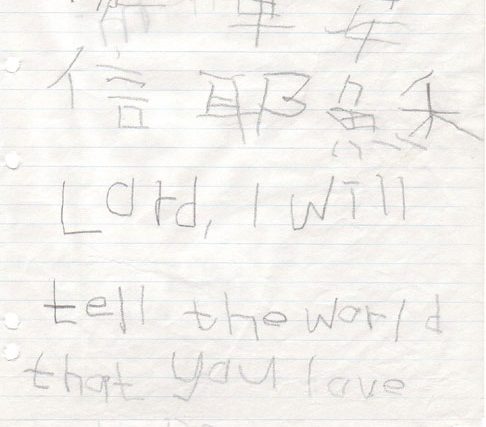 信耶穌
Lord, I will
tell the world
that you love